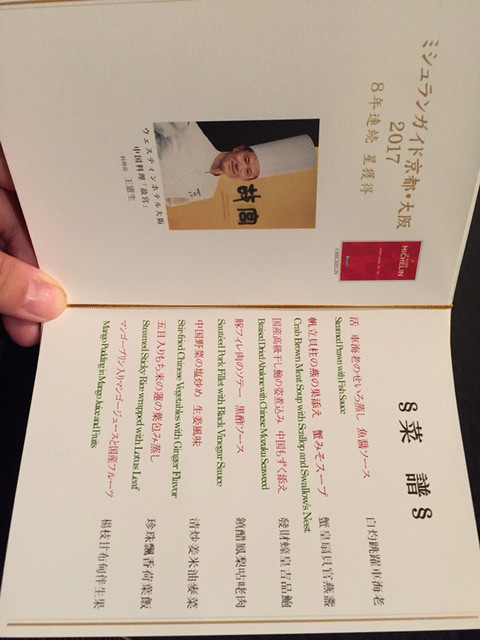 ミシュランガイド京都・大阪
2017
8年連続 星獲得
故宮
ウェスティンホテル大阪
中国料理「故宮」
料理長 王憲生
MICHELIN
©MICHELIN
8 菜 譜 8
活 車海老のせいろ蒸し 魚醬ソース
Steamed Prawn with Fish Sauce
白灼跳躍車海老
帆立貝柱の燕の巣添え 蟹みそスープ
Crab Brown Meat Soup with Scallop and Swallow's Nest
蟹皇扇貝官燕盞
国産高級干し鮑の姿煮込み 中国もずく添え
Braised Dried Abalone with Chinese Mozuku Seaweed
發財蠔皇吉品鮑
豚フィレ肉のソテー 黒酢ソース
Sautéed Pork Fillet with Black Vinegar Sauce
鎮醋鳳梨咕咾肉
中国野菜の塩炒め 生姜風味
Stir-fried Chinese Vegetables with Ginger Flavor
清炒姜米油麥菜
五目入りもち米の蓮の葉包み蒸し
Steamed Sticky Rice wrapped with Lotus Leaf
珍珠飄香荷葉飯
マンゴープリン入りマンゴージュースと国産フルーツ
Mango Pudding in Mango Juice and Fruits
楊枝甘布甸伴生果